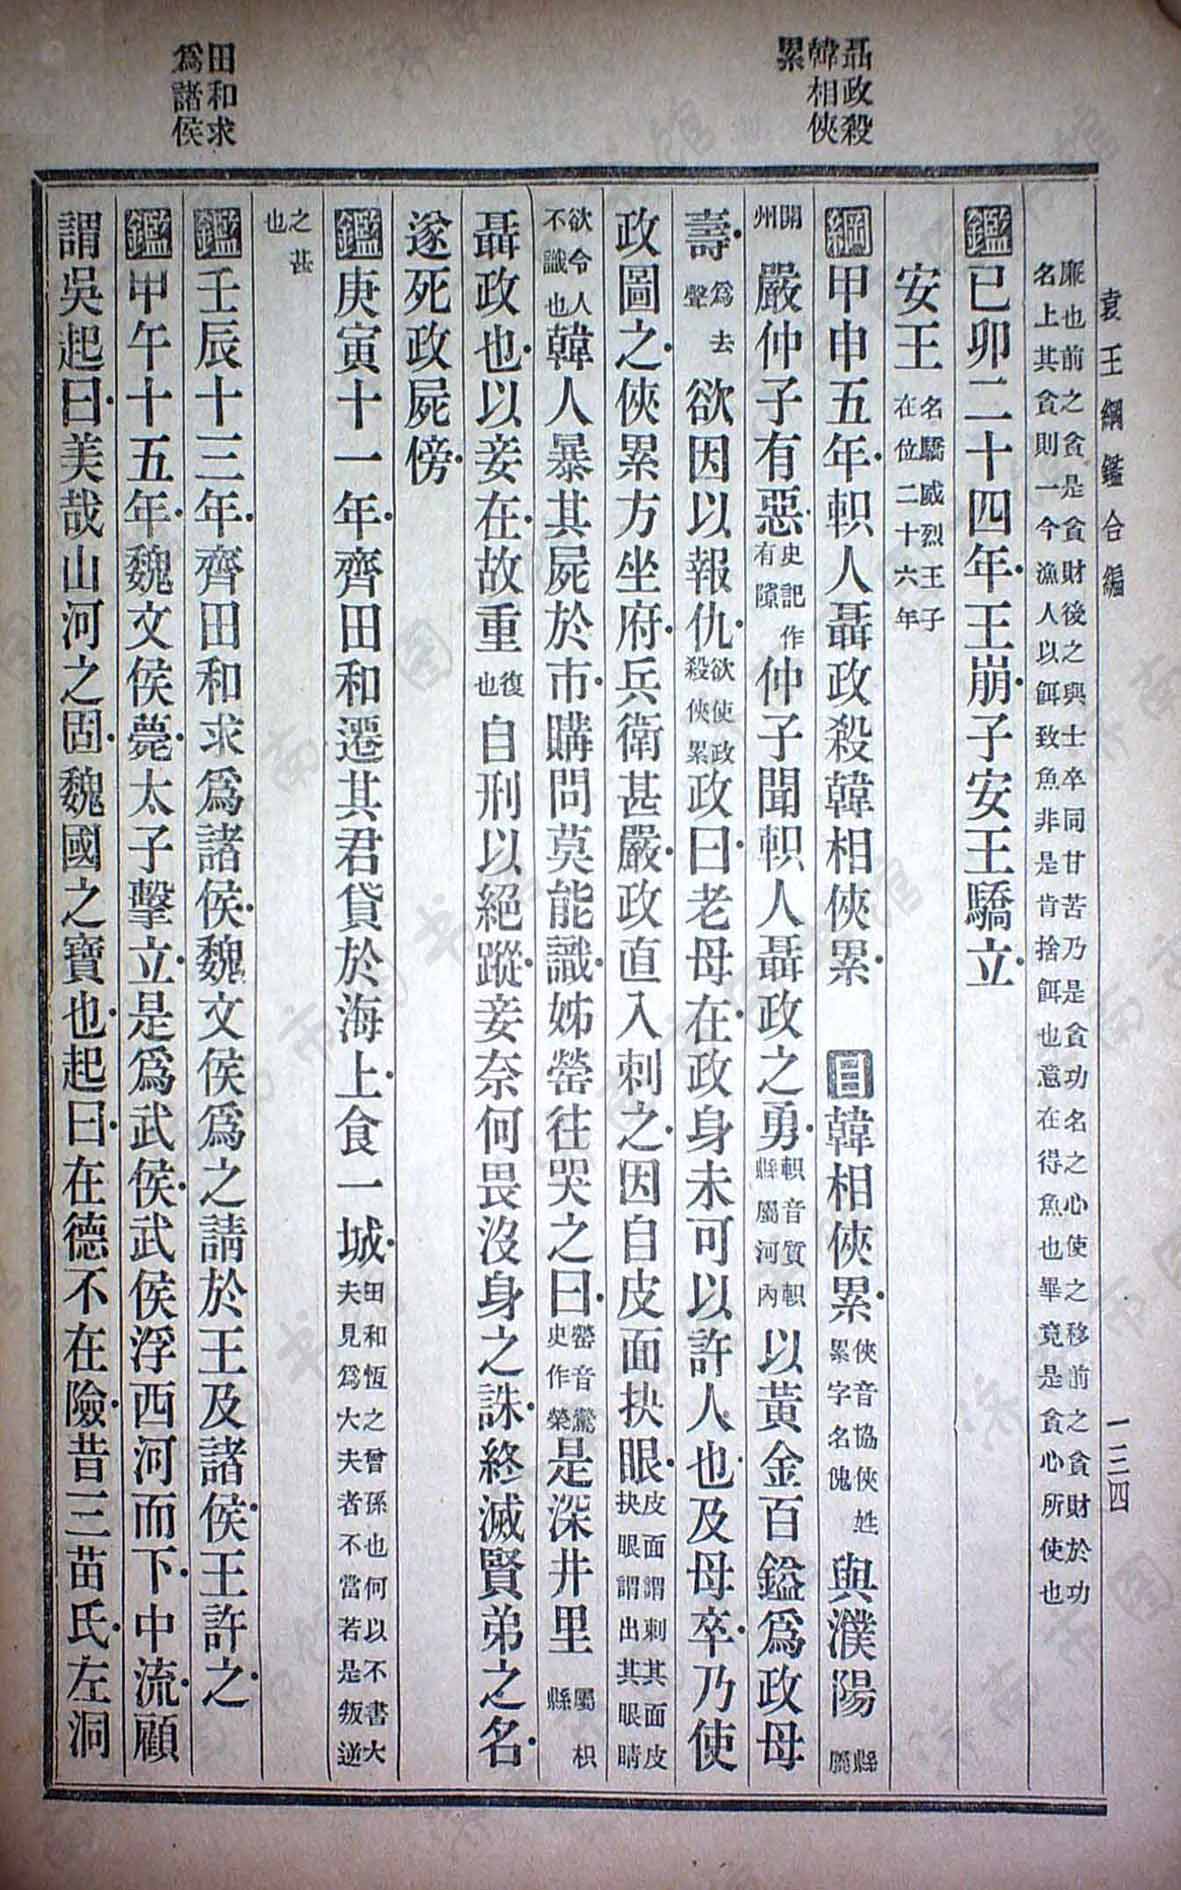 聶政殺
韓相俠
累
田和求
爲諸侯
袁王綱鑑合編
一三四
廉也前之貪是貪財後之與士卒同甘苦乃是貪功名之心使之移前之貪財於功
名上其貪則一今漁人以餌致魚非是肯捨餌也意在得魚也畢竟是貪心所使也
鑑己卯二十四年王崩子安王驕立
安王名驕威烈王子在位二十六年
綱甲申五年軹人聶政殺韓相俠累 目韓相俠累俠音協俠姓累字名傀與濮陽縣屬
開州嚴仲子有惡史記作有隙仲子聞軹人聶政之勇軹音質軹縣屬河內以黃金百鎰爲政母
壽爲去聲欲因以報仇欲使政殺俠累政曰老母在政身未可以許人也及母卒乃使
政圖之俠累方坐府兵衛甚嚴政直入刺之因自皮面抉眼皮面謂刺其面皮抉眼謂出其眼睛
欲令人不識也韓人暴其屍於市購問莫能識姊罃往哭之曰罃音鶯史作榮是深井里屬枳縣
聶政也以妾在故重復也自刑以絕蹤妾奈何畏沒身之誅終滅賢弟之名
遂死政屍傍
鑑庚寅十一年齊田和遷其君貸於海上食一城田和恆之曾孫也何以不書大夫見爲大夫者不當若是叛逆
之甚也
鑑壬辰十三年齊田和求爲諸侯魏文侯爲之請於王及諸侯王許之
鑑甲午十五年魏文侯薨太子擊立是爲武侯武侯浮西河而下中流顧
謂吳起曰美哉山河之固魏國之寶也起曰在德不在險昔三苗氏左洞